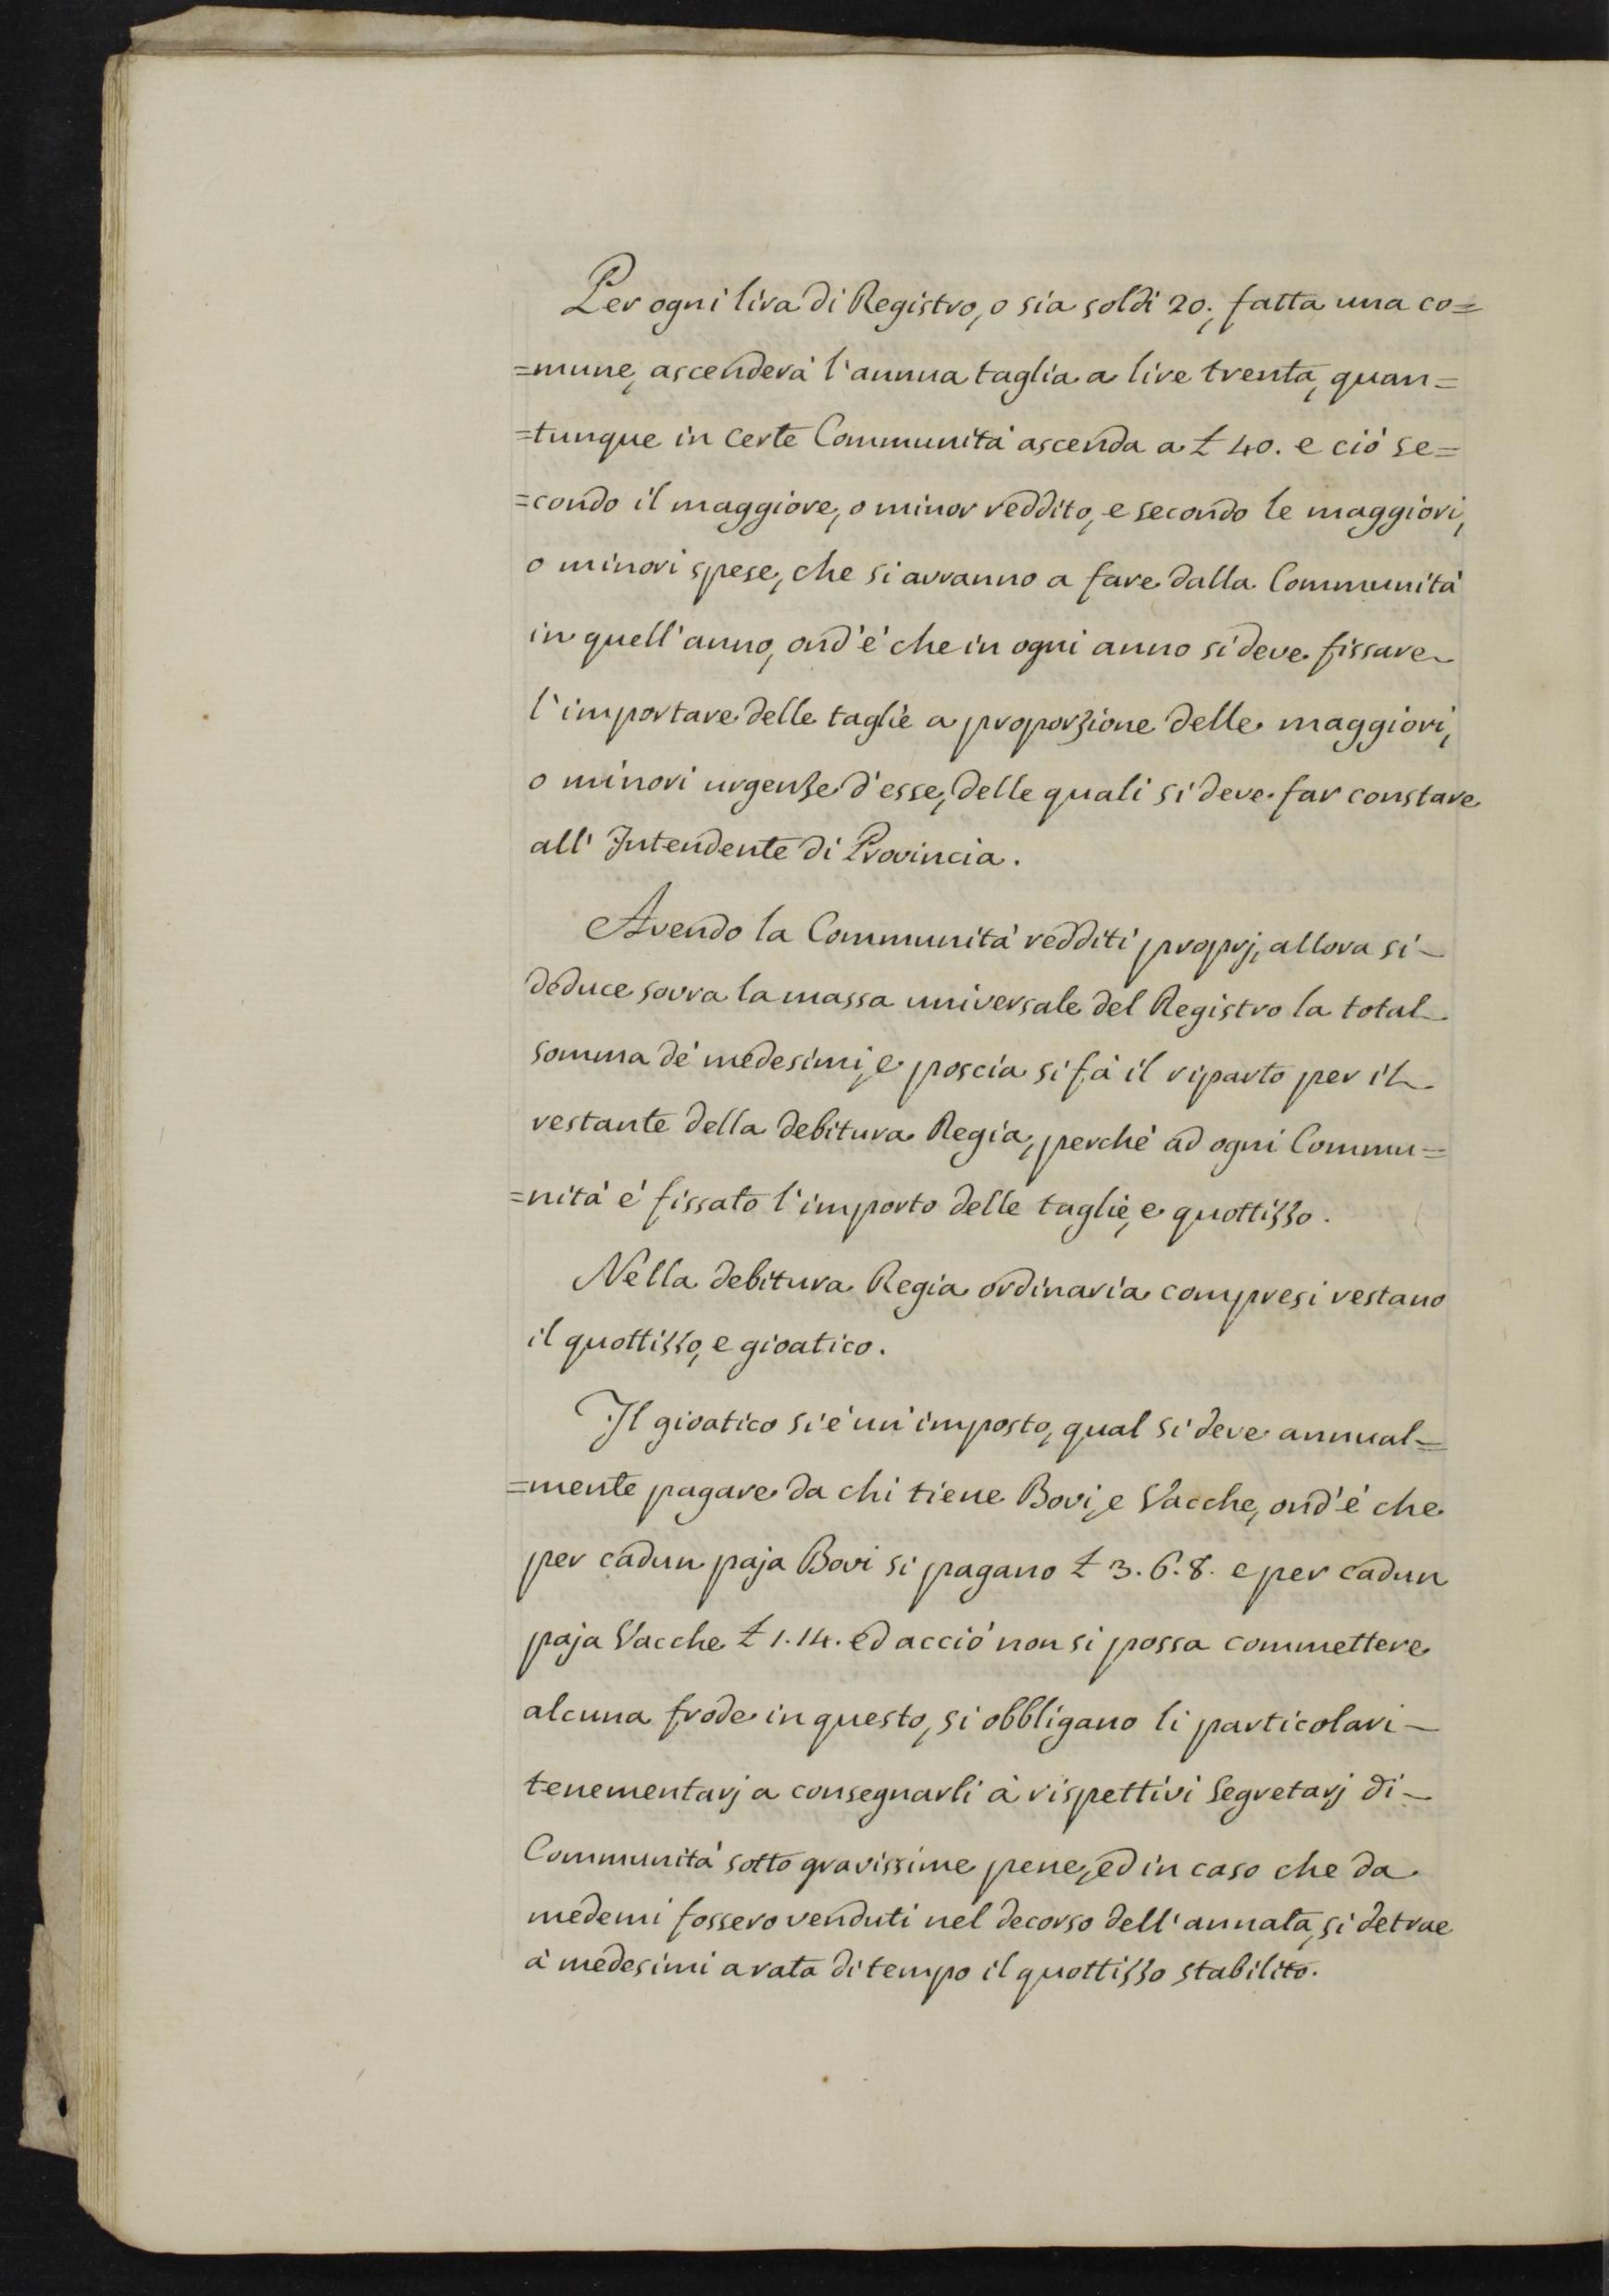 Per ogni lira di Registro, o sia soldi 20., fatta una co=
=mune, ascenderà l'annua taglia a lire trenta, quan=
=tunque in certe Communità ascenda a £ 40. e ciò se=
=condo il maggiore, o minor reddito, e secondo le maggiori,
o minori spese, che si avranno a fare dalla Communità
in quell'anno, ond'è che in ogni anno si deve fissare
l'importare delle taglie a proporzione delle maggiori,
o minori urgenze d'esse, delle quali si deve far constare
all' Intendente di Provincia.
Avendo la Communità redditi proprj, allora si
deduce sovra la massa universale del Registro la total
somma de' medesimi, e poscia si fà il riparto per il
restante della debitura Regia, perchè ad ogni Commu=
=nità è fissato l'importo delle taglie, e quottizzo.
Nella debitura Regia ordinaria compresi restano
il quottizzo, e giovatico.
Il giovatico si è un' imposto, qual si deve annual=
=mente pagare da chi tiene Bovi, e Vacche, ond'è che
per cadun paja Bovi si pagano £ 3. 6. 8. e per cadun
paja Vacche £ 1. 14. ed acciò non si possa commettere
alcuna frode in questo, si obbligano li particolari
tenementarj a consegnarli à rispettivi Segretarj di
Communità sotto gravissime pene, ed in caso che da
medemi fossero venduti nel decorso dell'annata, si detrae
à medesimi a rata di tempo il quottizzo stabilito.